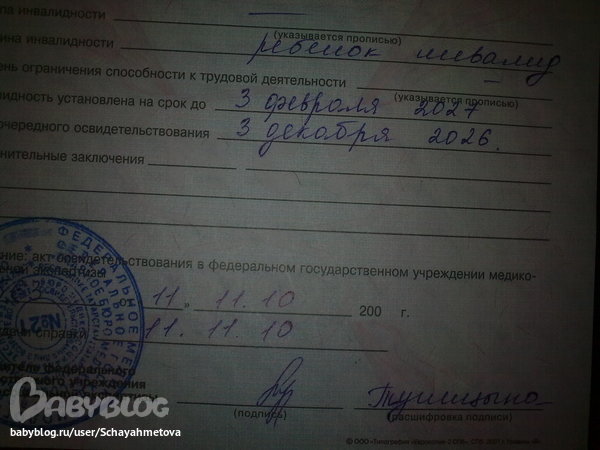 па инвалидности
(указывается прописью)
ина инвалидности ребёнок инвалид
ень ограничения способности к трудовой деятельности
(указывается прописью)
идность установлена на срок до 3 февраля 2027
очередного освидетельствования 3 декабря 2026.
нительные заключения
ание: акт освидетельствования в федеральном государственном учреждении медико-
экспертизы
11 " 11.10 200 г.
справки 11.11.10
№21
федерального
учреждения
(подпись) (расшифровка подписи)
BABYBLOG
babyblog.ru/user/Schayahmetova